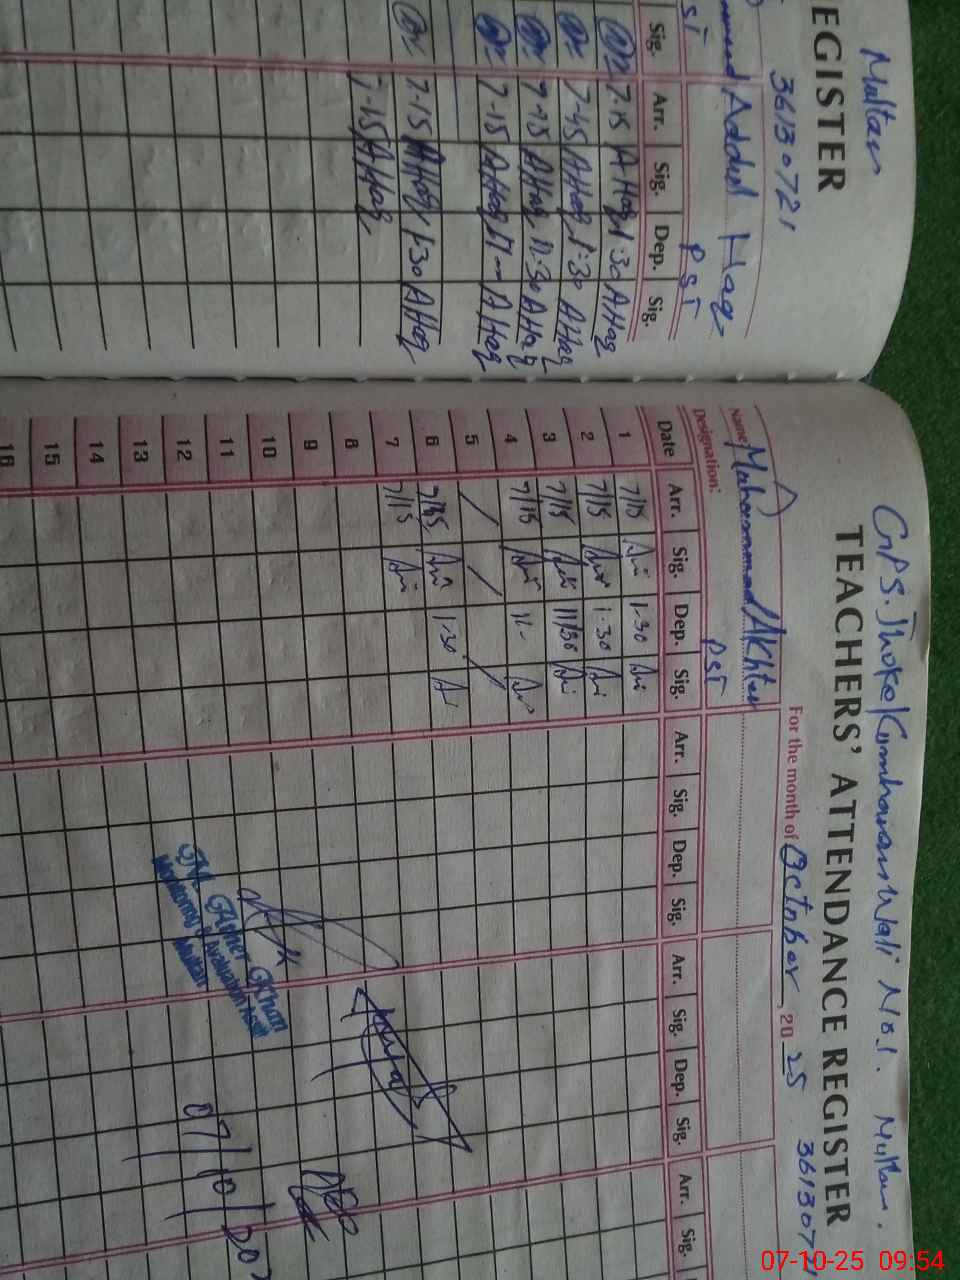 Multan
EGISTER
36130721
Added Haq
PST
PST
Sig. Arr. Sig. Dep. Sig.
7-15 AHaq 1:30 AHaq
7-45 AHaq 1:30 AHaq
7-15 AHaq 11:30 AHaq
7-15 AHaq 11- AHaq
7-15 AHaq 1:30 AHaq
7-15 AHaq
GPS. Jhoke Kumharan Wali No1. Multan.
TEACHERS' ATTENDANCE REGISTER
361307
For the month of October, 20 25
Name Muhammad Akhtar
Designation: PST
Date Arr. Sig. Dep. Sig. Arr. Sig. Dep. Sig. Arr. Sig. Dep. Sig. Arr. Sig.
1 7/15 1-30
2 7/15 1-30
3 7/15 11/30
4 7/15 11-
5
6 7/15 1-30
7 7/15
8
9
10
11
12
13
14
15
16
Monitoring & Evaluation
Multan
07/10/20
07-10-25 09:54